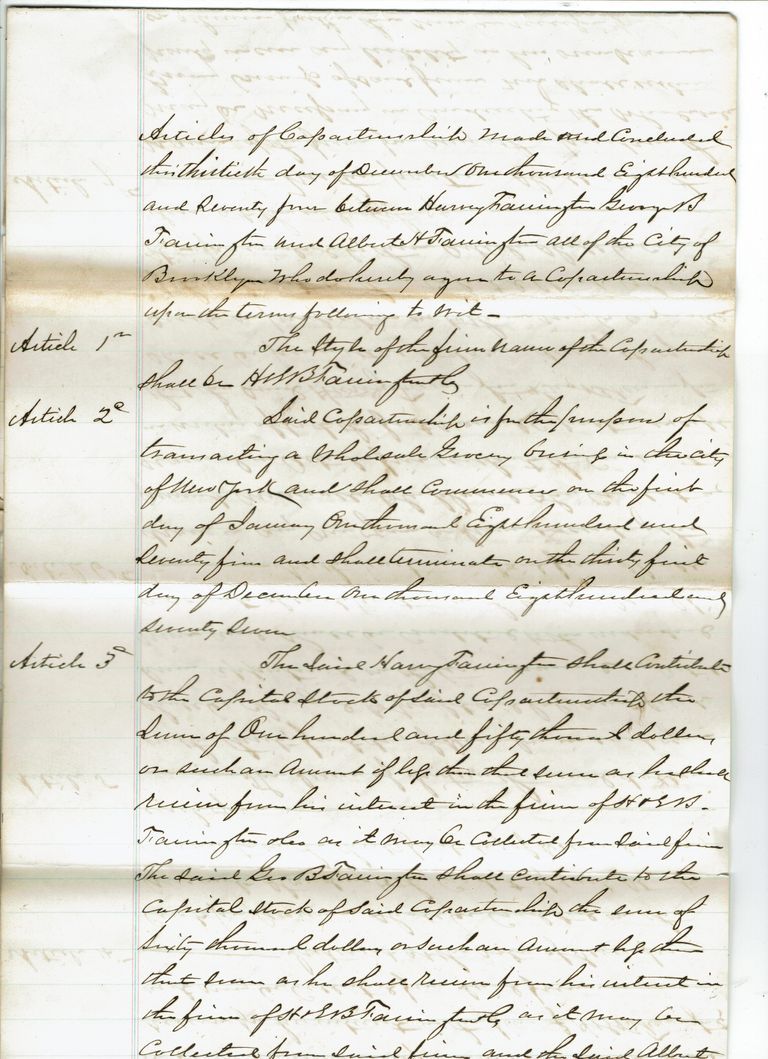 Articles of Copartnership made and Concluded
this thirtieth day of December One thousand Eight hundred
and Seventy four between Harvey Farrington George B
Farrington and Albert H Farrington all of the City of
Brooklyn Who do hereby agree to a Copartnership
upon the terms following to wit -
Article 1st The Style of the firm name of the Copartnership
shall be H & G B Farrington
Article 2d Said Copartnership is for the purpose of
transacting a Wholesale Grocery business in the city
of New York and shall Commence on the first
day of January One thousand Eight hundred and
Seventy five and shall terminate on the thirty first
day of December One thousand Eight hundred and
seventy seven
Article 3d The Said Harvey Farrington shall Contribute
to the Capital Stock of Said Copartnership the
Sum of One hundred and fifty thousand dollars
or such an Amount if less than that sum as he shall
receive from his interest in the firm of
Farrington as it may be Collected from Said firm
The Said Geo B Farrington shall contribute to the
Capital Stock of Said Copartnership the sum of
Sixty thousand dollars or such an Amount less than
that sum as he shall receive from his interest in
the firm of Farrington as it may be
Collected from Said firm and the Said Albert